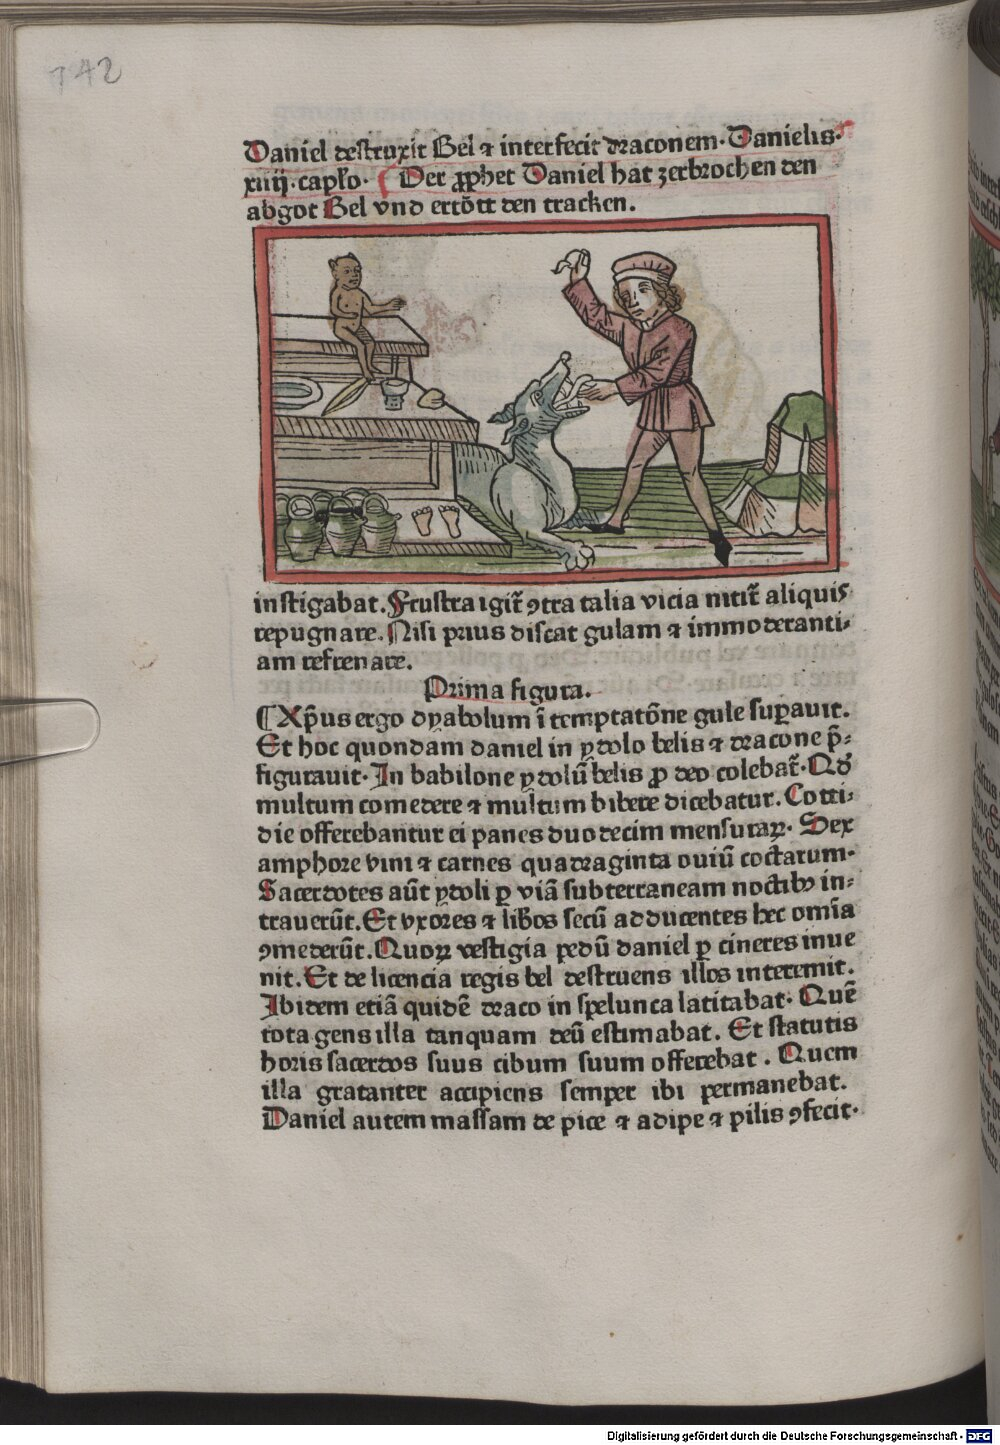 142
Daniel destruxit Bel ⁊ interfecit draconem. Danielis.
xiiij. capło. Der ꝓphet Daniel hat zerbrochen den
abgot Bel vnd ertött den tracken.
instigabat. Frustra igit̃ ꝯtra talia vicia nitit̃ aliquis
repugnare. Nisi prius discat gulam ⁊ immoderanti⸗
am refrenare.
Prima figura.
¶ Xp̃us ergo dyabolum ĩ temptatõne gule suꝑauit.
Et hoc quondam daniel in ydolo belis ⁊ dracone p̃⸗
figurauit. In babilone ydolũ belis ꝓ deo colebat̃. Qđ
multum comedere ⁊ multum bibere dicebatur. Cotti⸗
die offerebantur ei panes duodecim mensuraꝝ. Sex
amphore vini ⁊ carnes quadraginta ouiũ coctarum.
Sacerdotes aũt ydoli ꝑ viã subterraneam noctibꝫ in⸗
trauerũt. Et vxores ⁊ libos secũ adducentes hec om̃ia
ꝯmederũt. Quoꝝ vestigia pedũ daniel ꝑ cineres inue
nit. Et de licencia regis bel destruens illos interemit.
Ibidem etiã quidẽ draco in spelunca latitabat. Quẽ
tota gens illa tanquam deũ estimabat. Et statutis
horis sacerdos suus cibum suum offerebat. Quem
illa gratanter accipiens semper ibi permanebat.
Daniel autem massam de pice ⁊ adipe ⁊ pilis ꝯfecit.
Digitalisierung gefördert durch die Deutsche Forschungsgemeinschaft - DFG